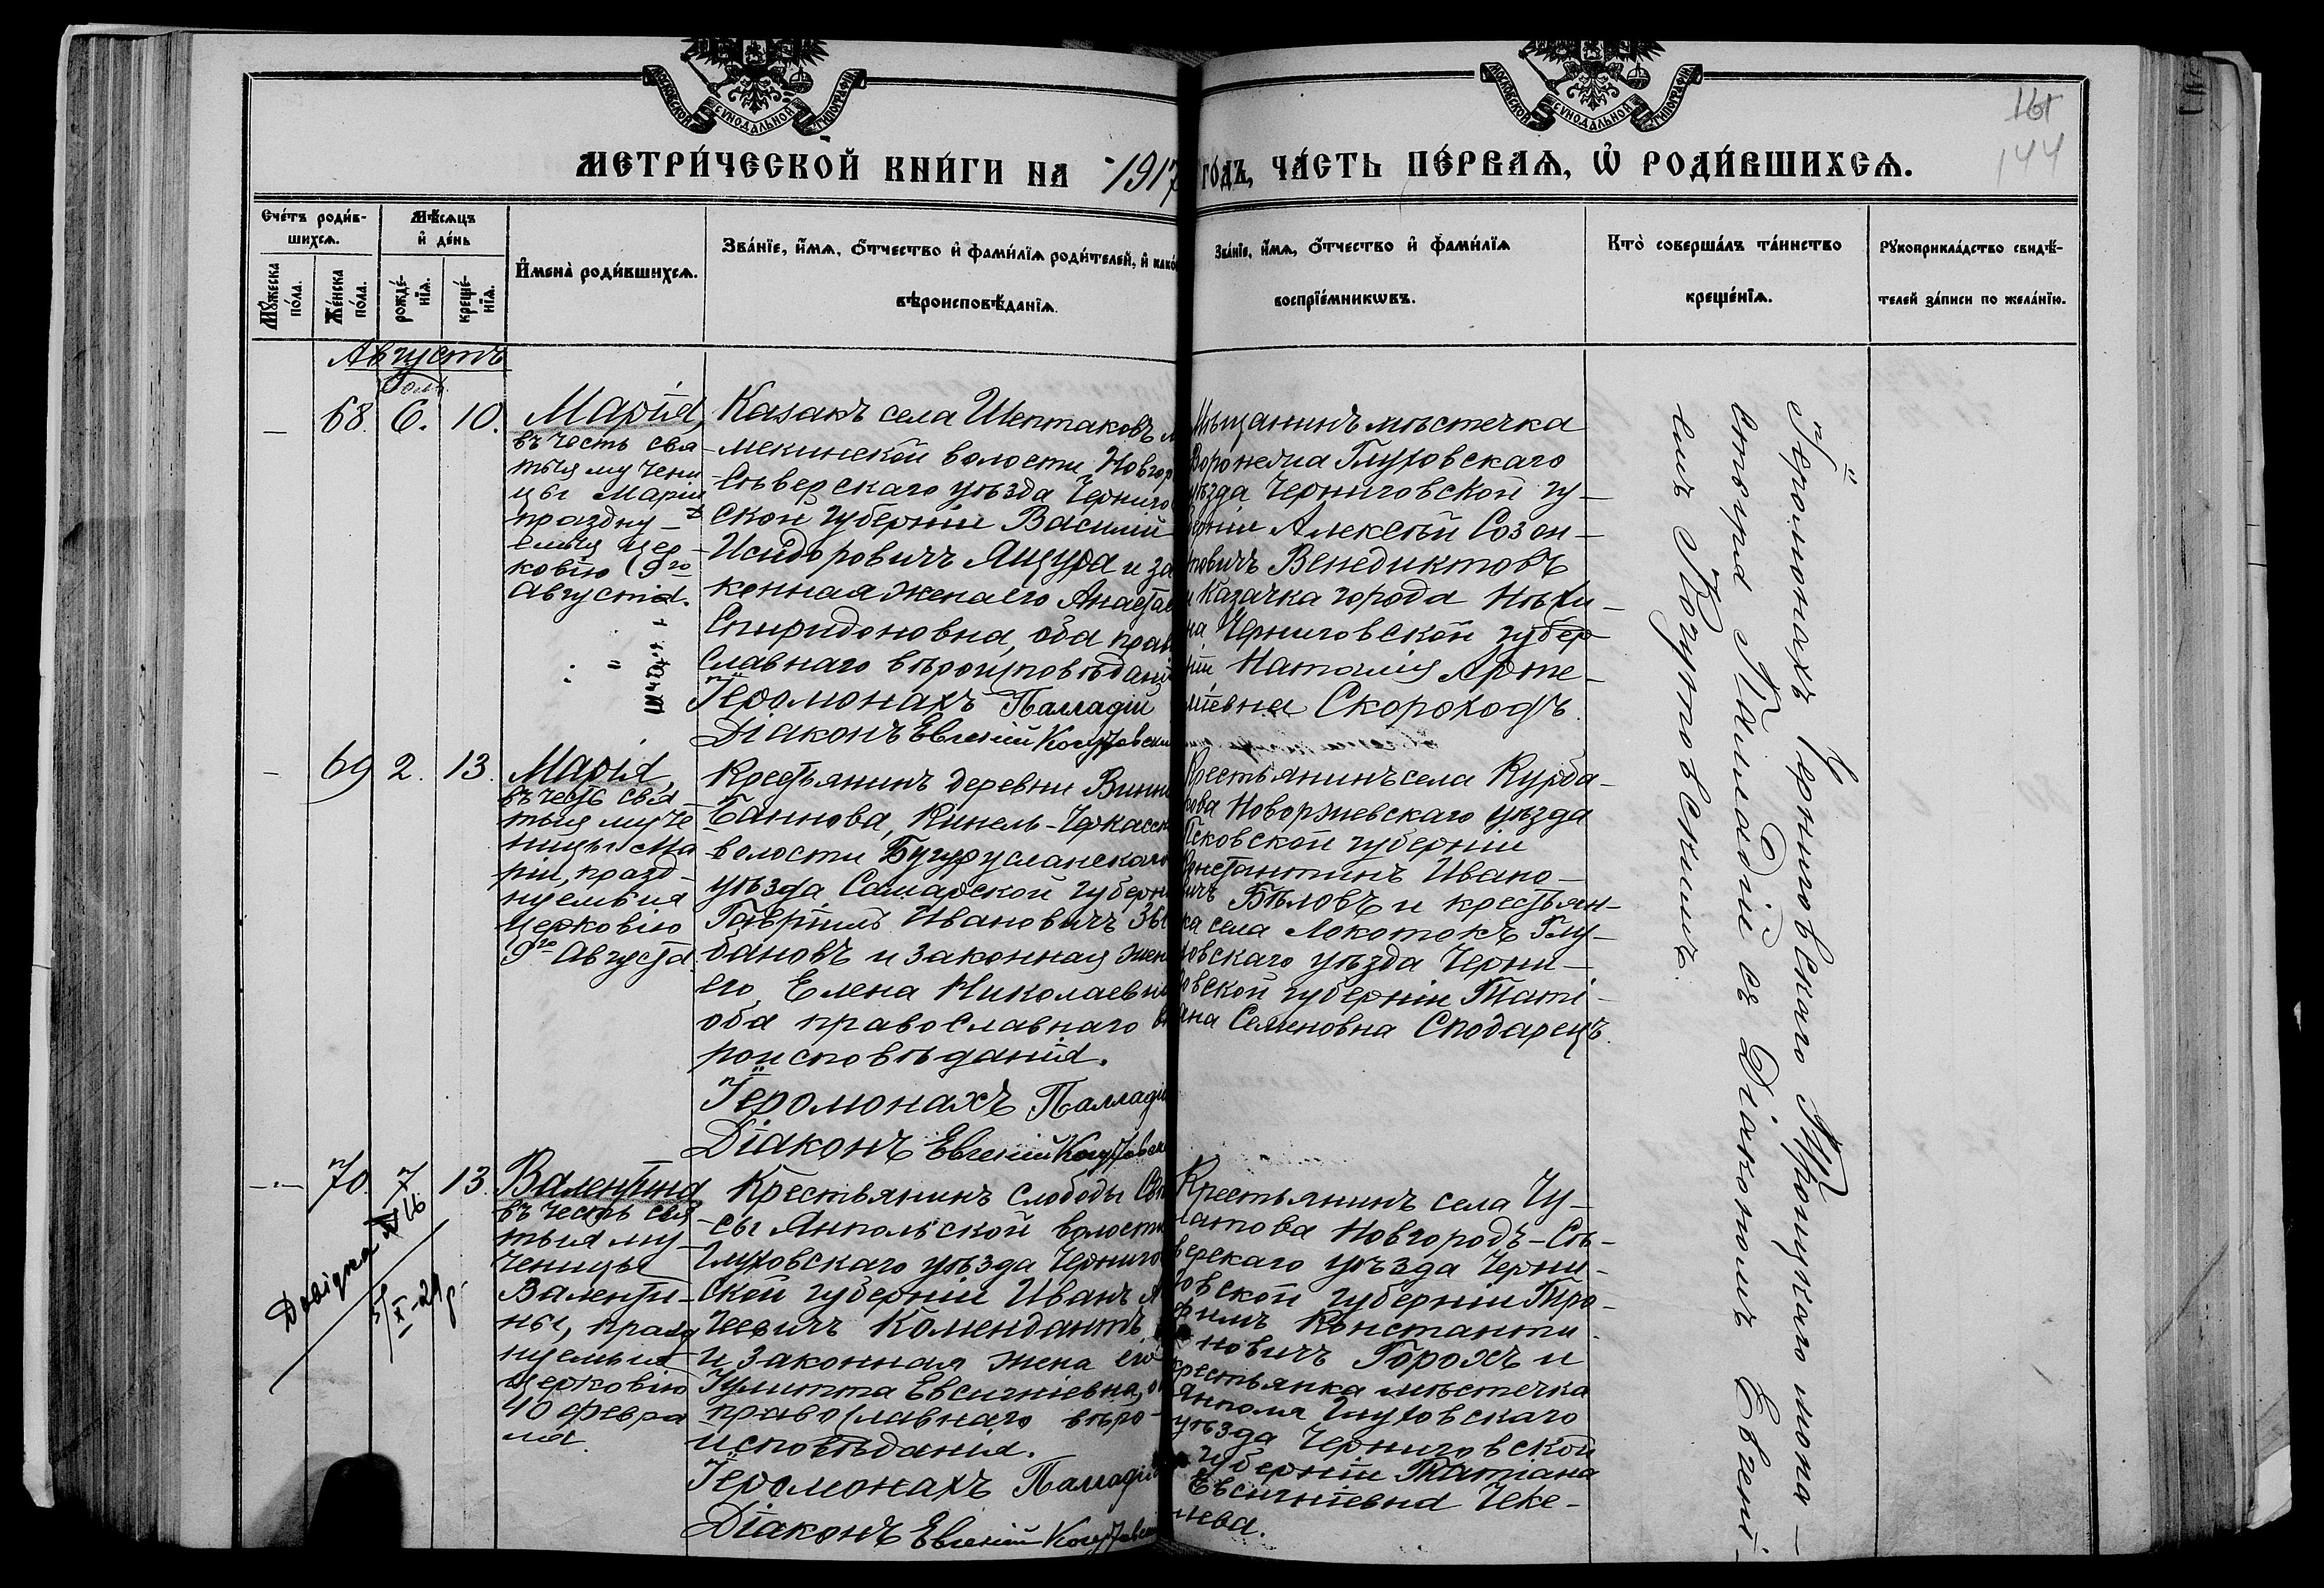 МОСКОВСКОЙ СѴНОДАЛЬНОЙ ТИПОГРАФІИ
МОСКОВСКОЙ СѴНОДАЛЬНОЙ ТИПОГРАФІИ
161
144
МЕТРИ́ЧЕСКОЙ КНИ́ГИ НА 1917 ГО́ДЪ, ЧА́СТЬ ПЕ́РВАѦ, Ѽ РОДИ́ВШИХСѦ.
Сче́тъ роди́в-
шихсѧ.
Мꙋ́жеска
по́ла.
Же́нска
по́ла.
Мѣ́сѧцъ
и҆ де́нь
рожде́-
нїѧ.
креще́-
нїѧ.
И҆мена̀ роди́вшихсѧ.
Зва́нїе, и҆́мѧ, ѻ҆́тчество и҆ фами́лїѧ роди́телей, и҆ како́
вѣроисповѣ́данїѧ.
Зва́нїе, и҆́мѧ, ѻ҆́тчество и҆ фами́лїѧ
воспрїе́мникѡвъ.
Кто̀ соверша́лъ та́инство
креще́нїѧ.
Рꙋкоприкла́дство свидѣ́-
телей за́писи по жела́нїю.
Августъ
— 68. 6. 10.
Марія,
въ честь свя-
тыя мучени
цы Маріи
праздну-
емыя цер-
ковію 9го
Августа.
Казакъ села Шептаковъ
мекинской волости Новгор
Сѣверскаго уѣзда Черниго
ской губерніи Василій
Исидоровичъ Ящура и за
конная жена его Анастас
Спиридоновна, оба прав
славнаго вѣроисповѣдані
Іеромонахъ Палладій
Діаконъ Евгеній
Мѣщанинъ мѣстечка
Воронежа Глуховскаго
уѣзда Черниговской гу-
берніи Алексѣй Созон-
товичъ Венедиктовъ
и казачка города Нѣжи-
на Черниговской губер-
ніи Наталія Арте-
міевна Скороходъ.
— 69 2. 13.
Марія,
въ честь свя-
тыя муче
ницы Ма
ріи, празд-
нуемыя
Церковію
9го Августа.
Крестьянинъ деревни
Баннова, Кинель-Черкасск
волости Бугурусланскаго
уѣзда Самарской губерн
Гавріилъ Ивановичъ Зы
бановъ и законная жен
его Елена Николаевн
оба православнаго вѣ
роисповѣданія.
Іеромонахъ Палладі
Діаконъ Евгеній
Крестьянинъ села Курба-
това Новоржевскаго уѣзда
Псковской губерніи
Константинъ Ивано-
вичъ Бѣловъ и крестьян-
ка села Локотокъ Глу-
ховскаго уѣзда Черни-
говской губерніи Таті-
ана Семеновна Сподарецъ.
— 70. 7 13.
Валентина
въ честь свя
тыя му-
ченицы
Валенти-
ны, празд
нуемыя
Церковію
10 февра
ля.
Крестьянинъ слободы
сы Ямпольской волости
Глуховскаго уѣзда Черниго
ской губерніи Иванъ
Комендантъ
и законная жена его
Іулитта Евсигніевна, о
православнаго вѣро-
исповѣданія.
Іеромонахъ Палладі
Діаконъ Евгеній
Крестьянинъ села Чу-
латова Новгородъ-Сѣ-
верскаго уѣзда Черни-
говской губерніи Тро-
фимъ Константи-
новичъ Горохъ и
крестьянка мѣстечка
Ямполя Глуховскаго
уѣзда Черниговской
губерніи Татіана
Евсигніевна Чеке-
нева.
Іеромонахъ Черниговскаго Троицкаго мона-
стыря Палладій съ Діакономъ Евгені-
емъ